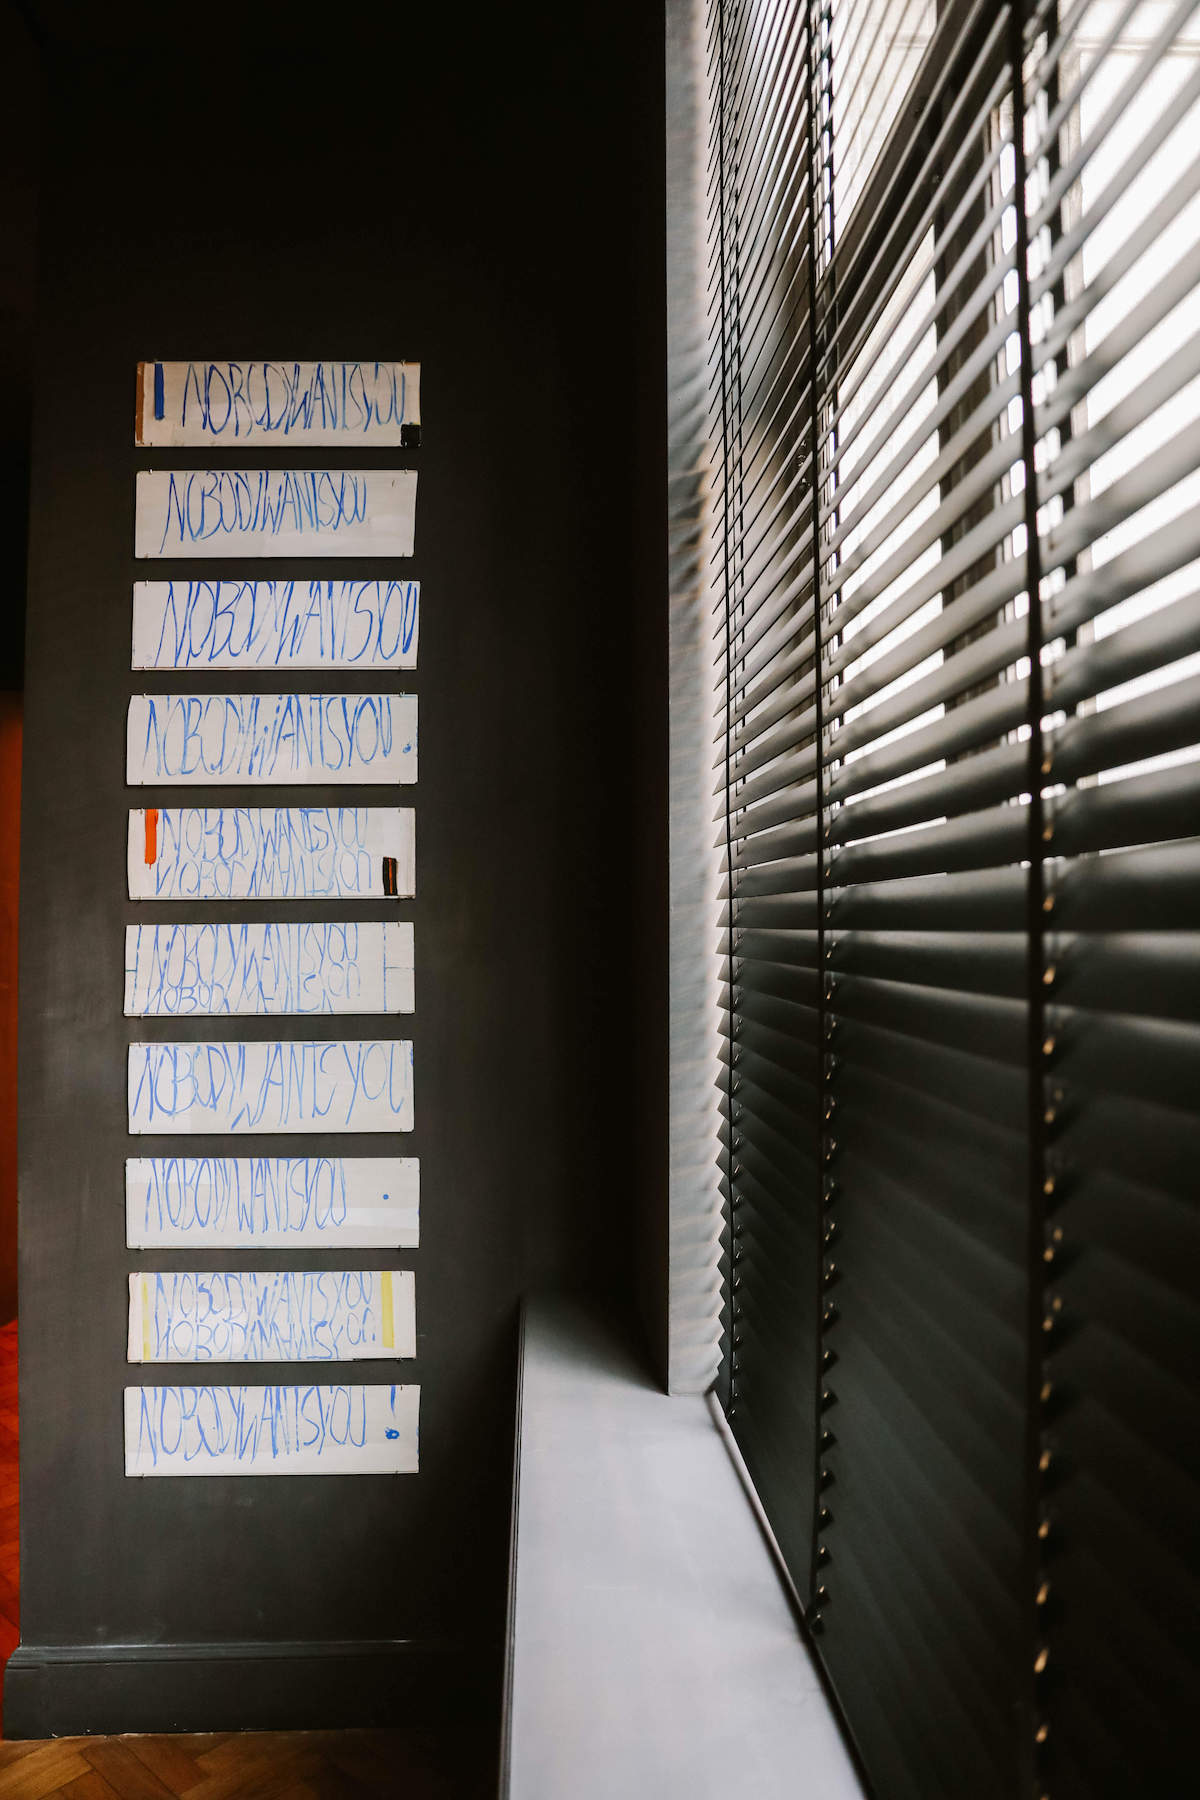 NOBODYWANTSYOU
NOBODYWANTSYOU
NOBODYWANTSYOU
NOBODYWANTSYOU.
NOBODYWANTSYOU
NOBODYWANTSYOU
NOBODYWANTSYOU
NOBODYWANTSYOU
NOBODYWANTS YOU
NOBODYWANTSYOU.
NOBODYWANTSYOU
NOBODYWANTSYOU
NOBODYWANTSYOU!